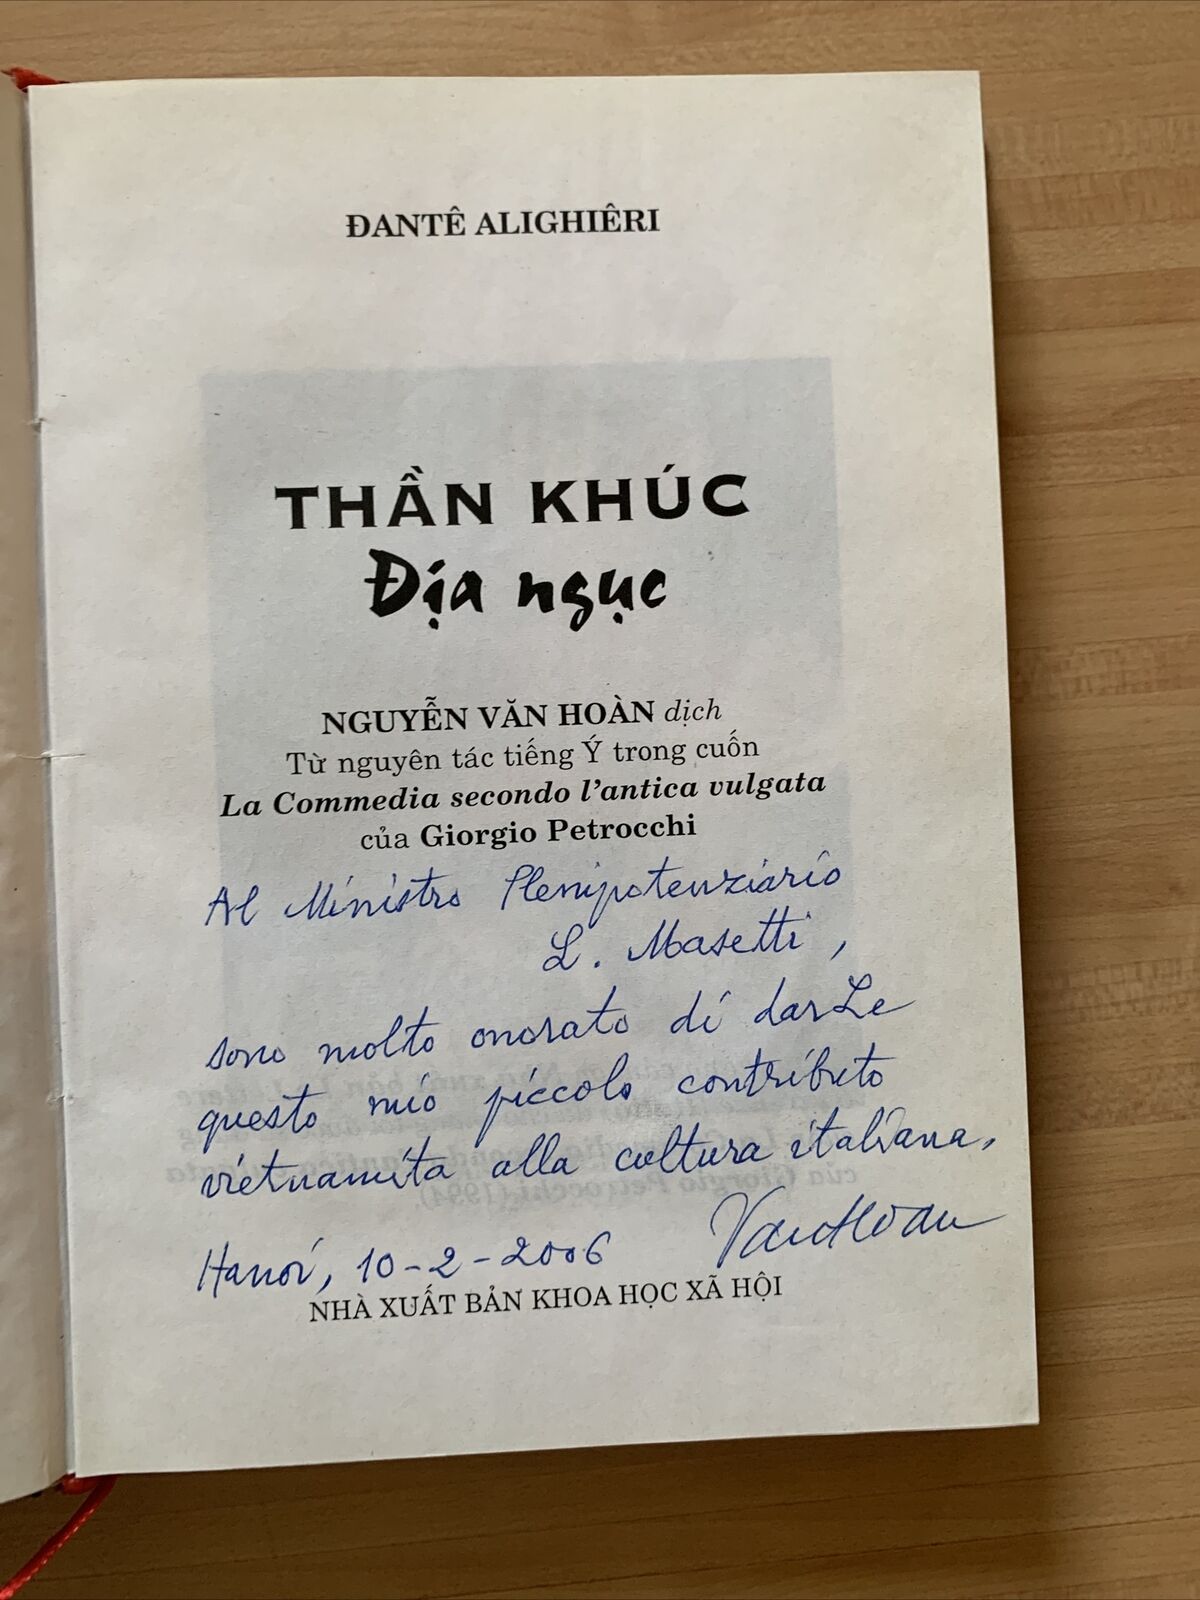 ĐANTÊ ALIGHIÊRI
THẦN KHÚC
Địa ngục
NGUYỄN VĂN HOÀN dịch
Từ nguyên tác tiếng Ý trong cuốn
La Commedia secondo l'antica vulgata
của Giorgio Petrocchi
Al Ministro Plenipotenziario
L. Masetti,
sono molto onorato di darLe
questo mio piccolo contributo
vietnamita alla cultura italiana.
Hanoi, 10-2-2006 VanHoan
NHÀ XUẤT BẢN KHOA HỌC XÃ HỘI